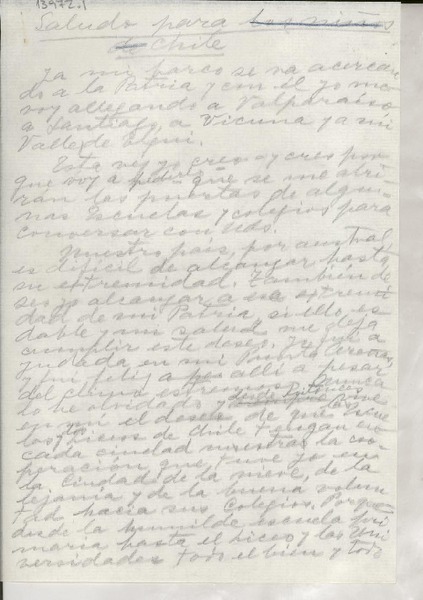 13972.1
Saludo para los niños
de Chile
Ya mi barco se va acercan
do a la Patria y con él yo me
voy allegando a Valparaíso
a Santiago, a Vicuna y a mi
Valle de Elqui.
Esta vez yo creo - y creo por
que voy a pedir - que se me abri
rán las puertas de algu-
nas Escuelas y colegios para
conversar con Uds.
Nuestro país, por austral,
es difícil de alcanzar hasta
su extremidad. También de
seo yo alcanzar a esa extremi
dad de mi Patria, si ello, es
dable y mi salud me deja
cumplir este deseo. Yo fui a
yudada en mi Punta Arenas,
y fui feliz allí a pesar
del clima extremoso. Nunca
lo he olvidado y desde Entonces vive
en mí el deseo de que las Escue
las y los Liceos de Chile tengan en
cada ciudad nuestra la coo-
peración que tuve yo en
la Ciudad de la nieve, de la
lejanía y de la buena volun
tad hacia sus Colegios. Porque
desde la humilde escuela pri
maria hasta el Liceo y las Uni
versidades todo el bien y todo